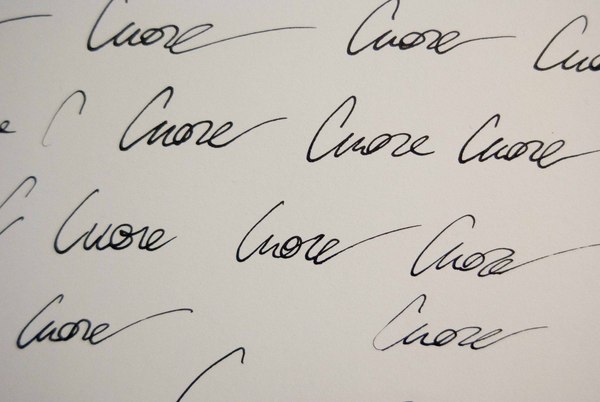 Cuore Cuore
Cuore Cuore Cuore
Cuore Cuore Cuore
Cuore Cuore